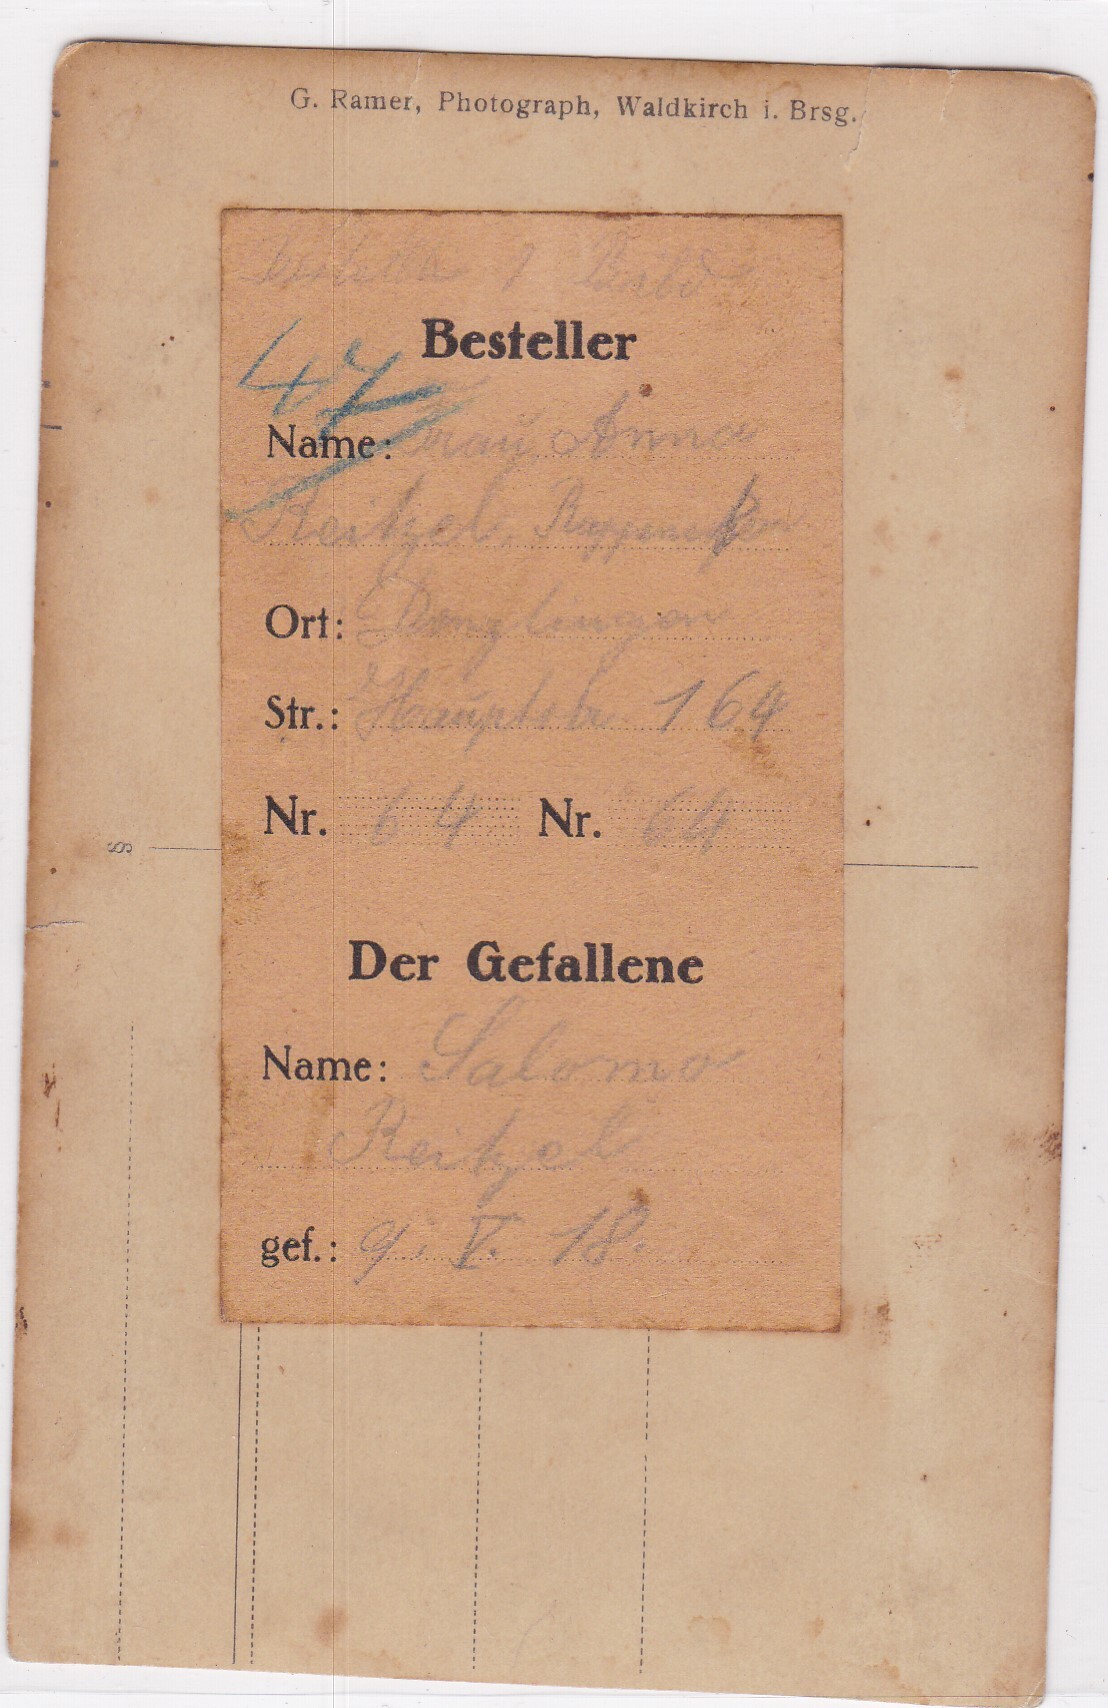 G. Ramer, Photograph, Waldkirch i. Brsg.
1 Bild
Besteller
47
Name: Frau Anna
Reitzel,
Ort:
Str.: Hauptstr. 164
Nr. 64 Nr. 64
8
Der Gefallene
Name: Salomo
Reitzel
gef.: 9. V. 18.